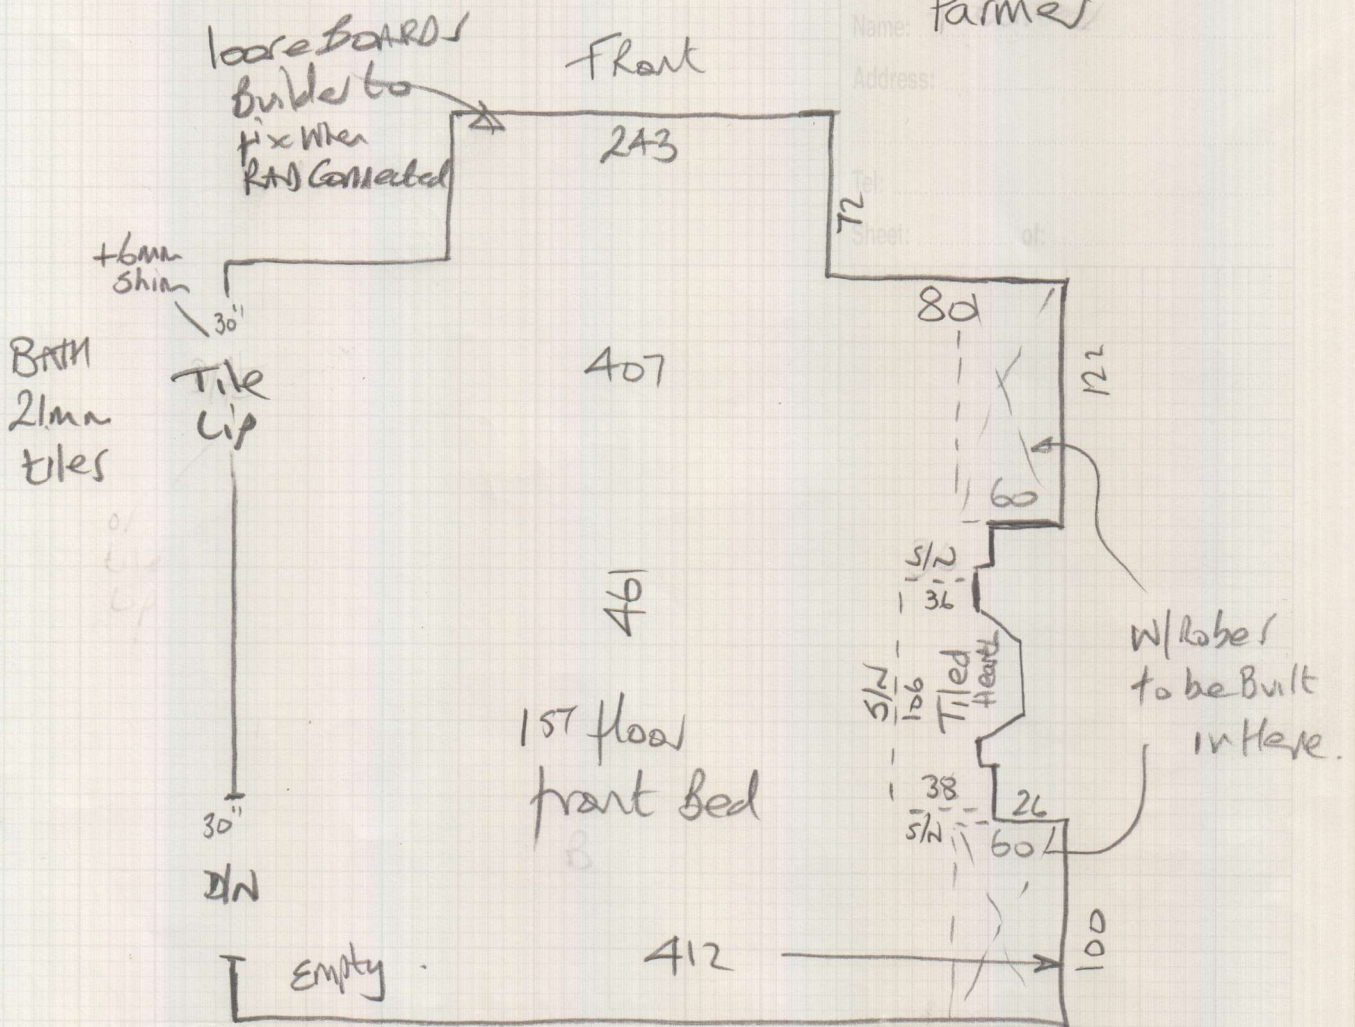 Farmer
Name:
Address:
Tel:
Sheet: of:
loose BOARDS
Builder to
fix When
RAD Connected
FRont
243
72
+6mm
Shim
30"
BATH
21mm
tiles
Tile
Lip
407
80
122
60
S/N
36
461
S/N
106
Tiled
Hearth
W/Robes
to be Built
in Here.
1ST floor
front Bed
38
S/N
26
60
30"
D/N
Empty.
412
100